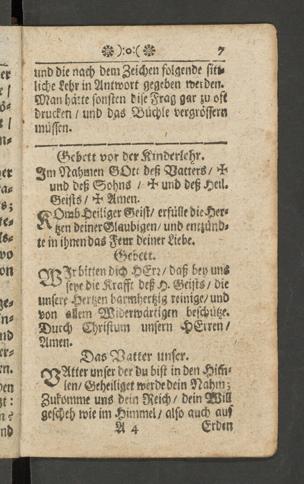 ❁ ):o:( ❁ 7
und die nach dem Zeichen folgende sitt-
liche Lehr in Antwort gegeben werden.
Man hätte sonsten dise Frag gar zu oft
drucken / und das Büchle vergrössern
müssen.
Gebett vor der Kinderlehr.
Im Nahmen GOtt deß Vatters / ✠
und deß Sohns / ✠ und deß Heil.
Geists / ✠ Amen.
KOmb Heiliger Geist / erfülle die Her-
tzen deiner Glaubigen / und entzünd-
te in ihnen das Feur deiner Liebe.
Gebett.
WIr bitten dich HErz / daß bey uns
seye die Krafft deß H. Geists / die
unsere Hertzen barmhertzig reinige / und
von allem Widerwärtigen beschütze.
Durch Christum unsern HErren /
Amen.
Das Vatter unser.
VAtter unser der du bist in den Him-
len / Geheiliget werde dein Nahm;
Zukomme uns dein Reich / dein Will
gescheh wie im Himmel / also auch auf
A 4 Erden